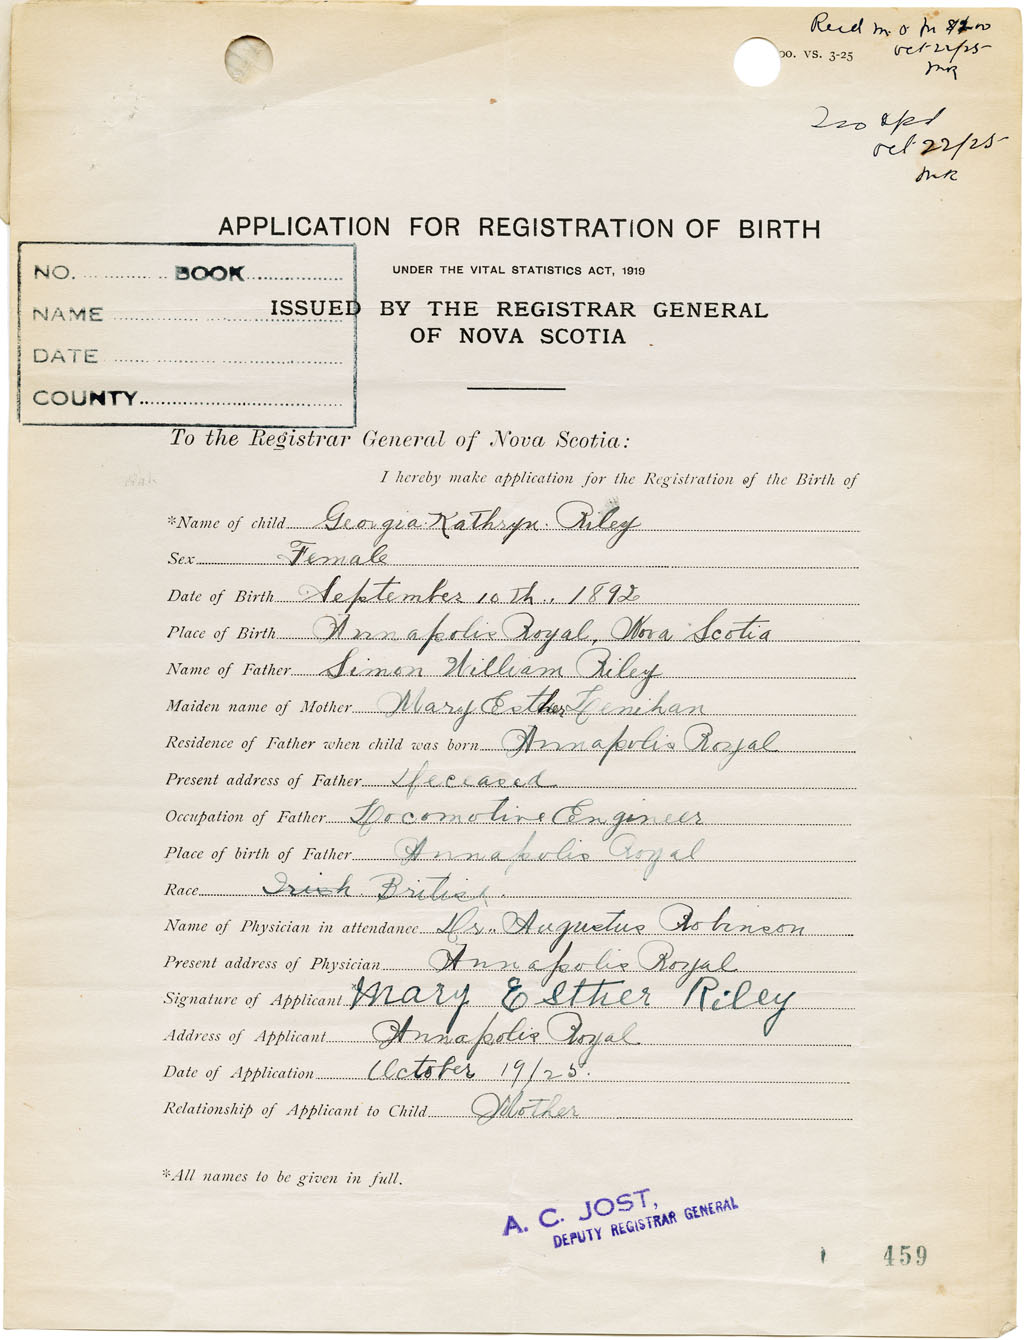 Recd m. o for $2.00
Oct 22/25
MR
00. VS. 3-25
Oct 22/25
MR
APPLICATION FOR REGISTRATION OF BIRTH
UNDER THE VITAL STATISTICS ACT, 1919
ISSUED BY THE REGISTRAR GENERAL
OF NOVA SCOTIA
NO. .............. BOOK ..............
NAME ..............
DATE ..............
COUNTY..............
To the Registrar General of Nova Scotia:
I hereby make application for the Registration of the Birth of
*Name of child Georgia Kathryn Riley
Sex Female
Date of Birth September 10th., 1892
Place of Birth Annapolis Royal, Nova Scotia
Name of Father Simon William Riley
Maiden name of Mother Mary Esther Lenihan
Residence of Father when child was born Annapolis Royal
Present address of Father Deceased
Occupation of Father Locomotive Engineer
Place of birth of Father Annapolis Royal
Race Irish British.
Name of Physician in attendance Dr. Augustus Robinson
Present address of Physician Annapolis Royal
Signature of Applicant Mary Esther Riley
Address of Applicant Annapolis Royal
Date of Application October 19/25.
Relationship of Applicant to Child Mother
*All names to be given in full.
A. C. JOST,
DEPUTY REGISTRAR GENERAL
459